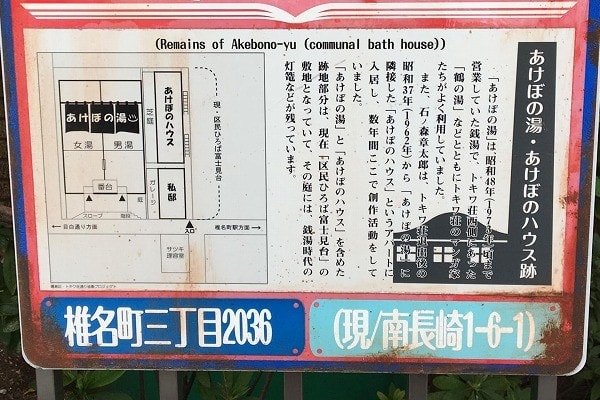 (Remains of Akebono-yu (communal bath house))
あけぼの湯・あけぼのハウス跡
「あけぼの湯」は昭和48年(1973年)頃まで
営業していた銭湯で、トキワ荘西側にあった
「鶴の湯」などとともにトキワ荘のマンガ家
たちがよく利用していました。
また、石ノ森章太郎は、トキワ荘退出後の
昭和37年(1962年)から「あけぼの湯」に
隣接した「あけぼのハウス」というアパートに
入居し、数年間ここで創作活動をして
いました。
「あけぼの湯」と「あけぼのハウス」を含めた
跡地部分は、現在「区民ひろば富士見台」の
敷地となっていて、その庭には、銭湯時代の
灯篭などが残っています。
あけぼの湯♨
女湯
男湯
番台
スロープ
階段
芝庭
ガレージ
あけぼのハウス
私邸
現・区民ひろば富士見台
入口
目白通り方面
椎名町駅方面
サツキ
理容室
豊島区 トキワ荘通り協働プロジェクト
椎名町三丁目2036
(現/南長崎1-6-1)